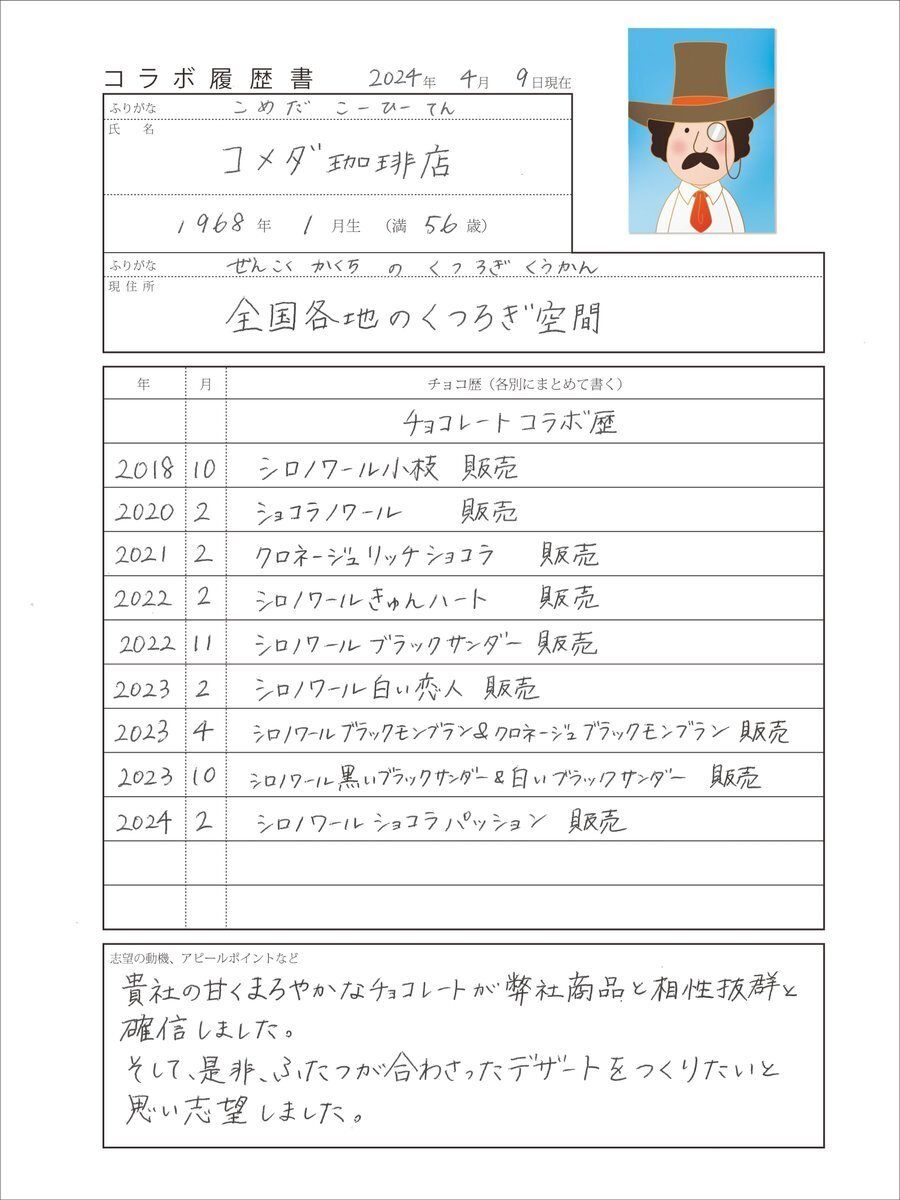 コラボ履歴書 2024年 4月 9日現在
ふりがな こめだ こーひーてん
氏 名
コメダ珈琲店
1968年 1月生 (満 56歳)
ふりがな ぜんこく かくち の くつろぎ くうかん
現住所
全国各地のくつろぎ空間
年 月 チョコ歴(各別にまとめて書く)
チョコレートコラボ歴
2018 10 シロノワール小枝 販売
2020 2 ショコラノワール 販売
2021 2 クロネージュリッチショコラ 販売
2022 2 シロノワールきゅんハート 販売
2022 11 シロノワールブラックサンダー 販売
2023 2 シロノワール白い恋人 販売
2023 4 シロノワールブラックモンブラン&クロネージュブラックモンブラン 販売
2023 10 シロノワール黒いブラックサンダー&白いブラックサンダー 販売
2024 2 シロノワールショコラパッション 販売
志望の動機、アピールポイントなど
貴社の甘くまろやかなチョコレートが弊社商品と相性抜群と
確信しました。
そして、是非、ふたつが合わさったデザートをつくりたいと
思い志望しました。